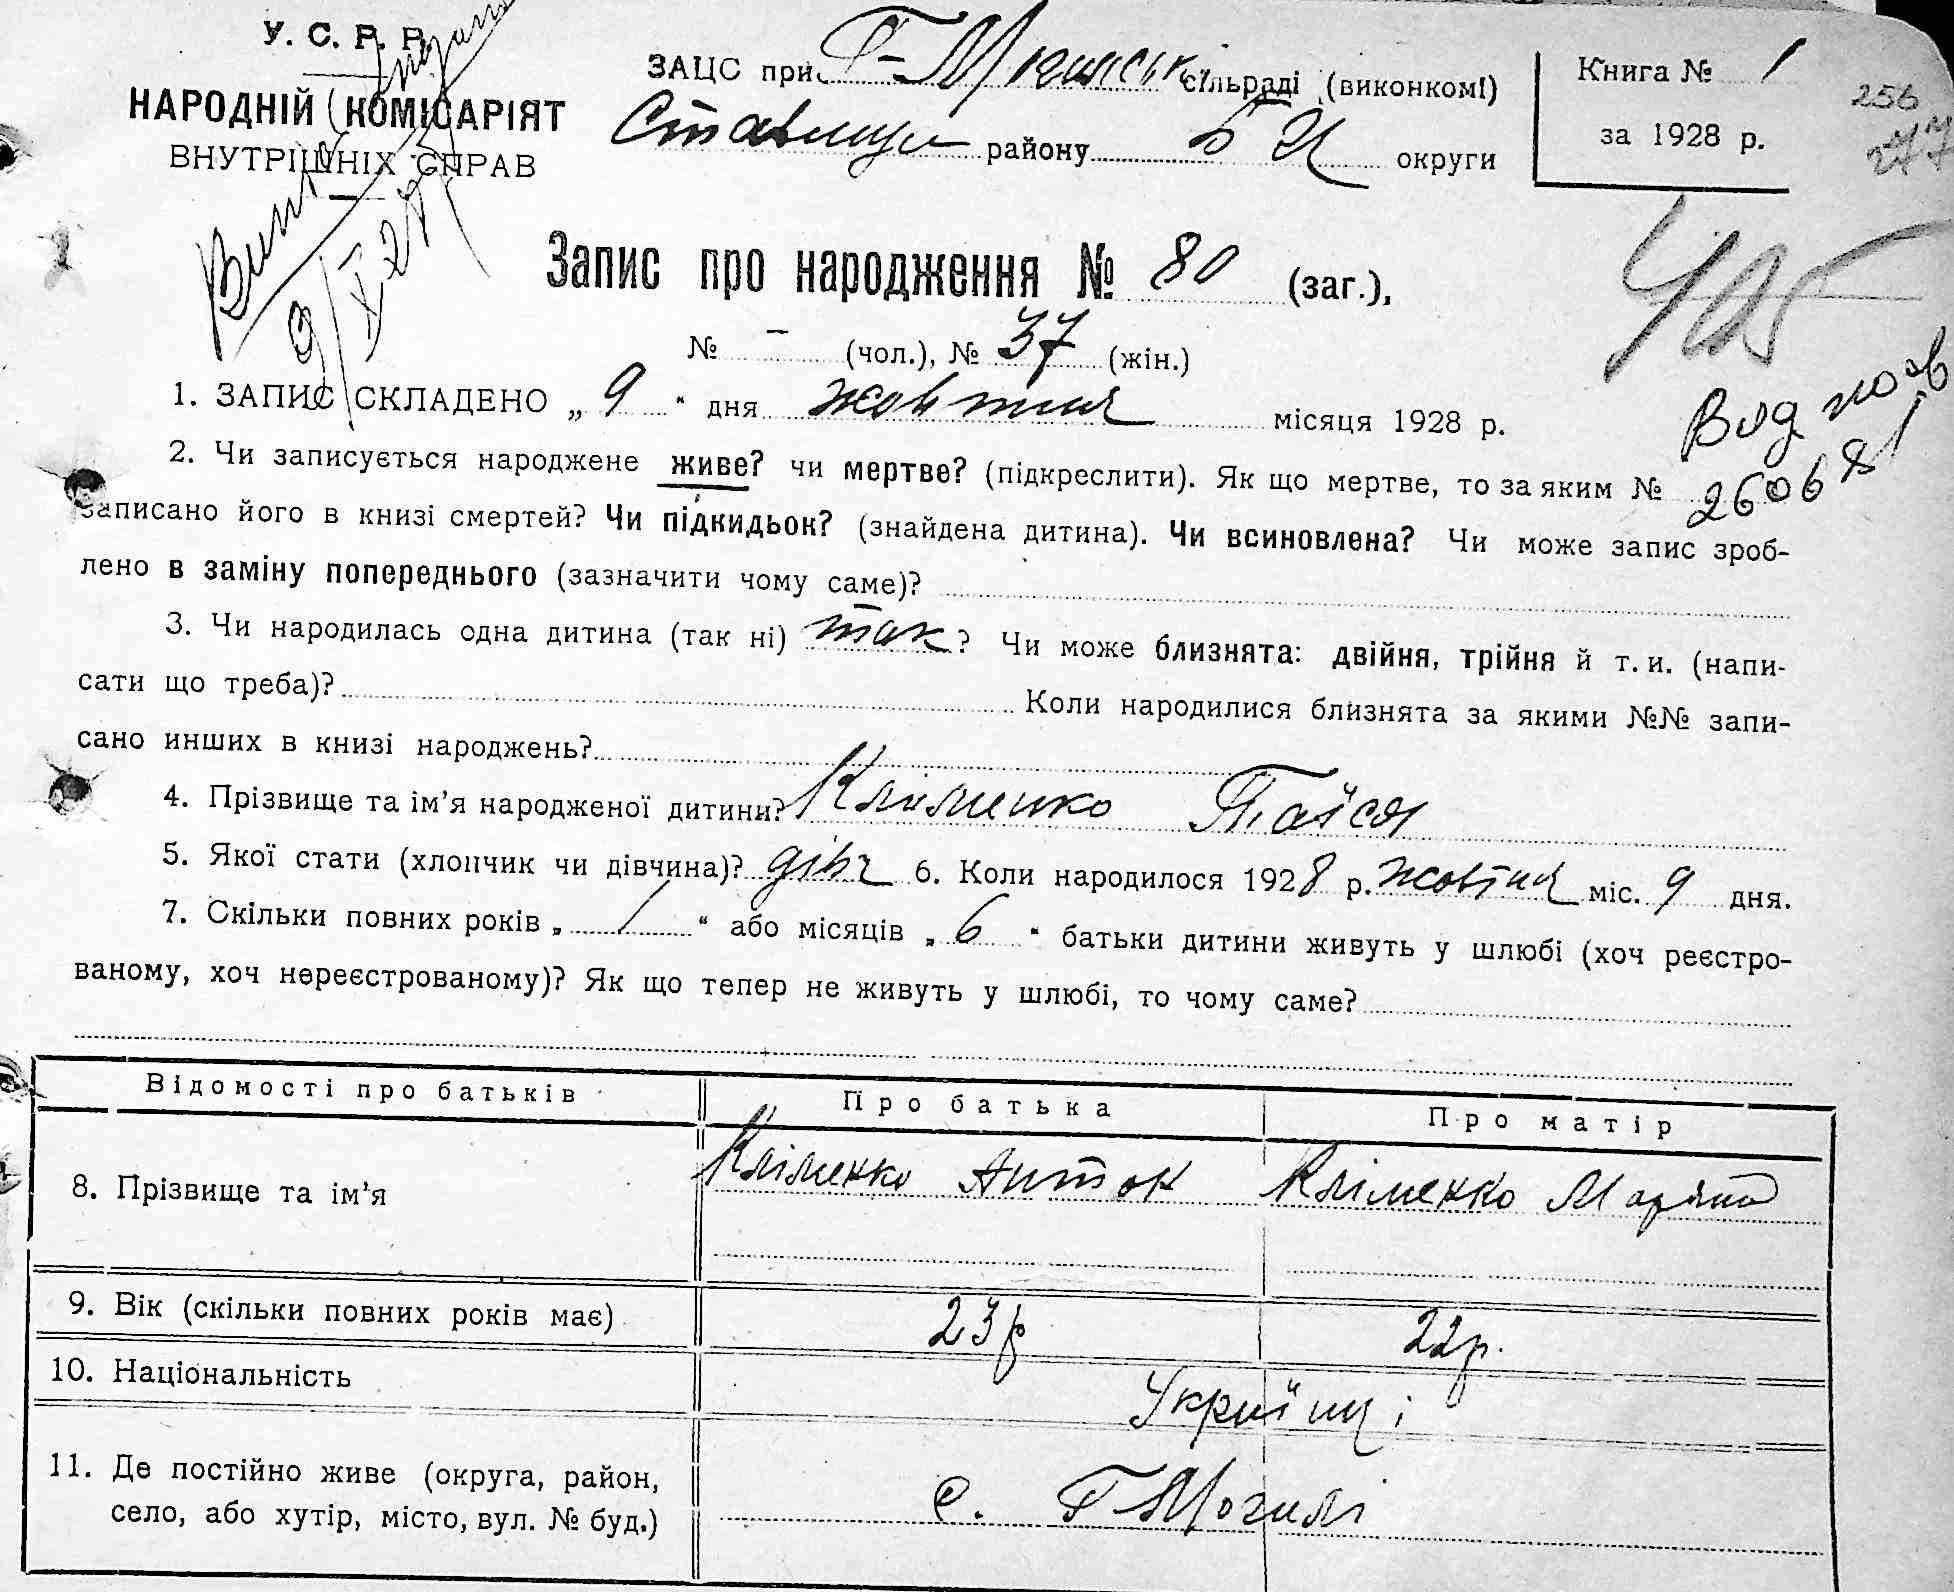 У. С. Р. Р.
НАРОДНІЙ КОМІСАРІЯТ
ВНУТРІШНІХ СПРАВ
ЗАЦС при Г-Могилській сільраді (виконкомі)
Ставищи району Б Ц округи
Книга № 1
за 1928 р.
256
277
Запис про народження № 80 (заг.),
№ – (чол.), № 37 (жін.)
425
1. ЗАПИС СКЛАДЕНО „ 9 “ дня жовтня місяця 1928 р.
2. Чи записується народжене живе? чи мертве? (підкреслити). Як що мертве, то за яким №
записано його в книзі смертей? Чи підкидьок? (знайдена дитина). Чи всиновлена? Чи може запис зроб-
лено в заміну попереднього (зазначити чому саме)?
3. Чи народилась одна дитина (так ні) так? Чи може близнята: двійня, трійня й т. и. (напи-
сати що треба)? Коли народилися близнята за якими №№ запи-
сано инших в книзі народжень?
4. Прізвище та ім’я народженої дитини? Кліменко Таїся
5. Якої стати (хлопчик чи дівчина)? дівч 6. Коли народилося 1928 р. жовтня міс. 9 дня.
7. Скільки повних років „ 1 “ або місяців „ 6 “ батьки дитини живуть у шлюбі (хоч реєстро-
ваному, хоч нереєстрованому)? Як що тепер не живуть у шлюбі, то чому саме?
Відомості про батьків Про батька Про матір
8. Прізвище та ім’я Кліменко Антон Кліменко Мар’яна
9. Вік (скільки повних років має) 23 р 22 р.
10. Національність Українці
11. Де постійно живе (округа, район,
село, або хутір, місто, вул. № буд.) с. Г-Могилі